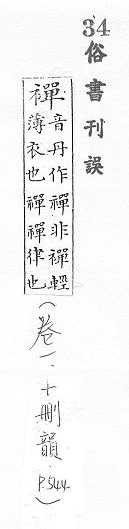 34
俗書刊誤
襌
音丹作禪非襌輕
薄衣也禪禪律也
(卷一、十刪韻 P.544.)